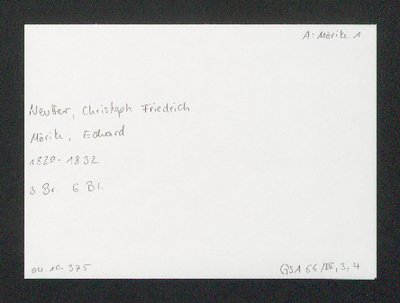 A: Mörike 1
Neuffer, Christoph Friedrich
Mörike, Eduard
1820-1832
3 Br. 6 Bl.
04.10.375
GSA 66/IV, 3, 4